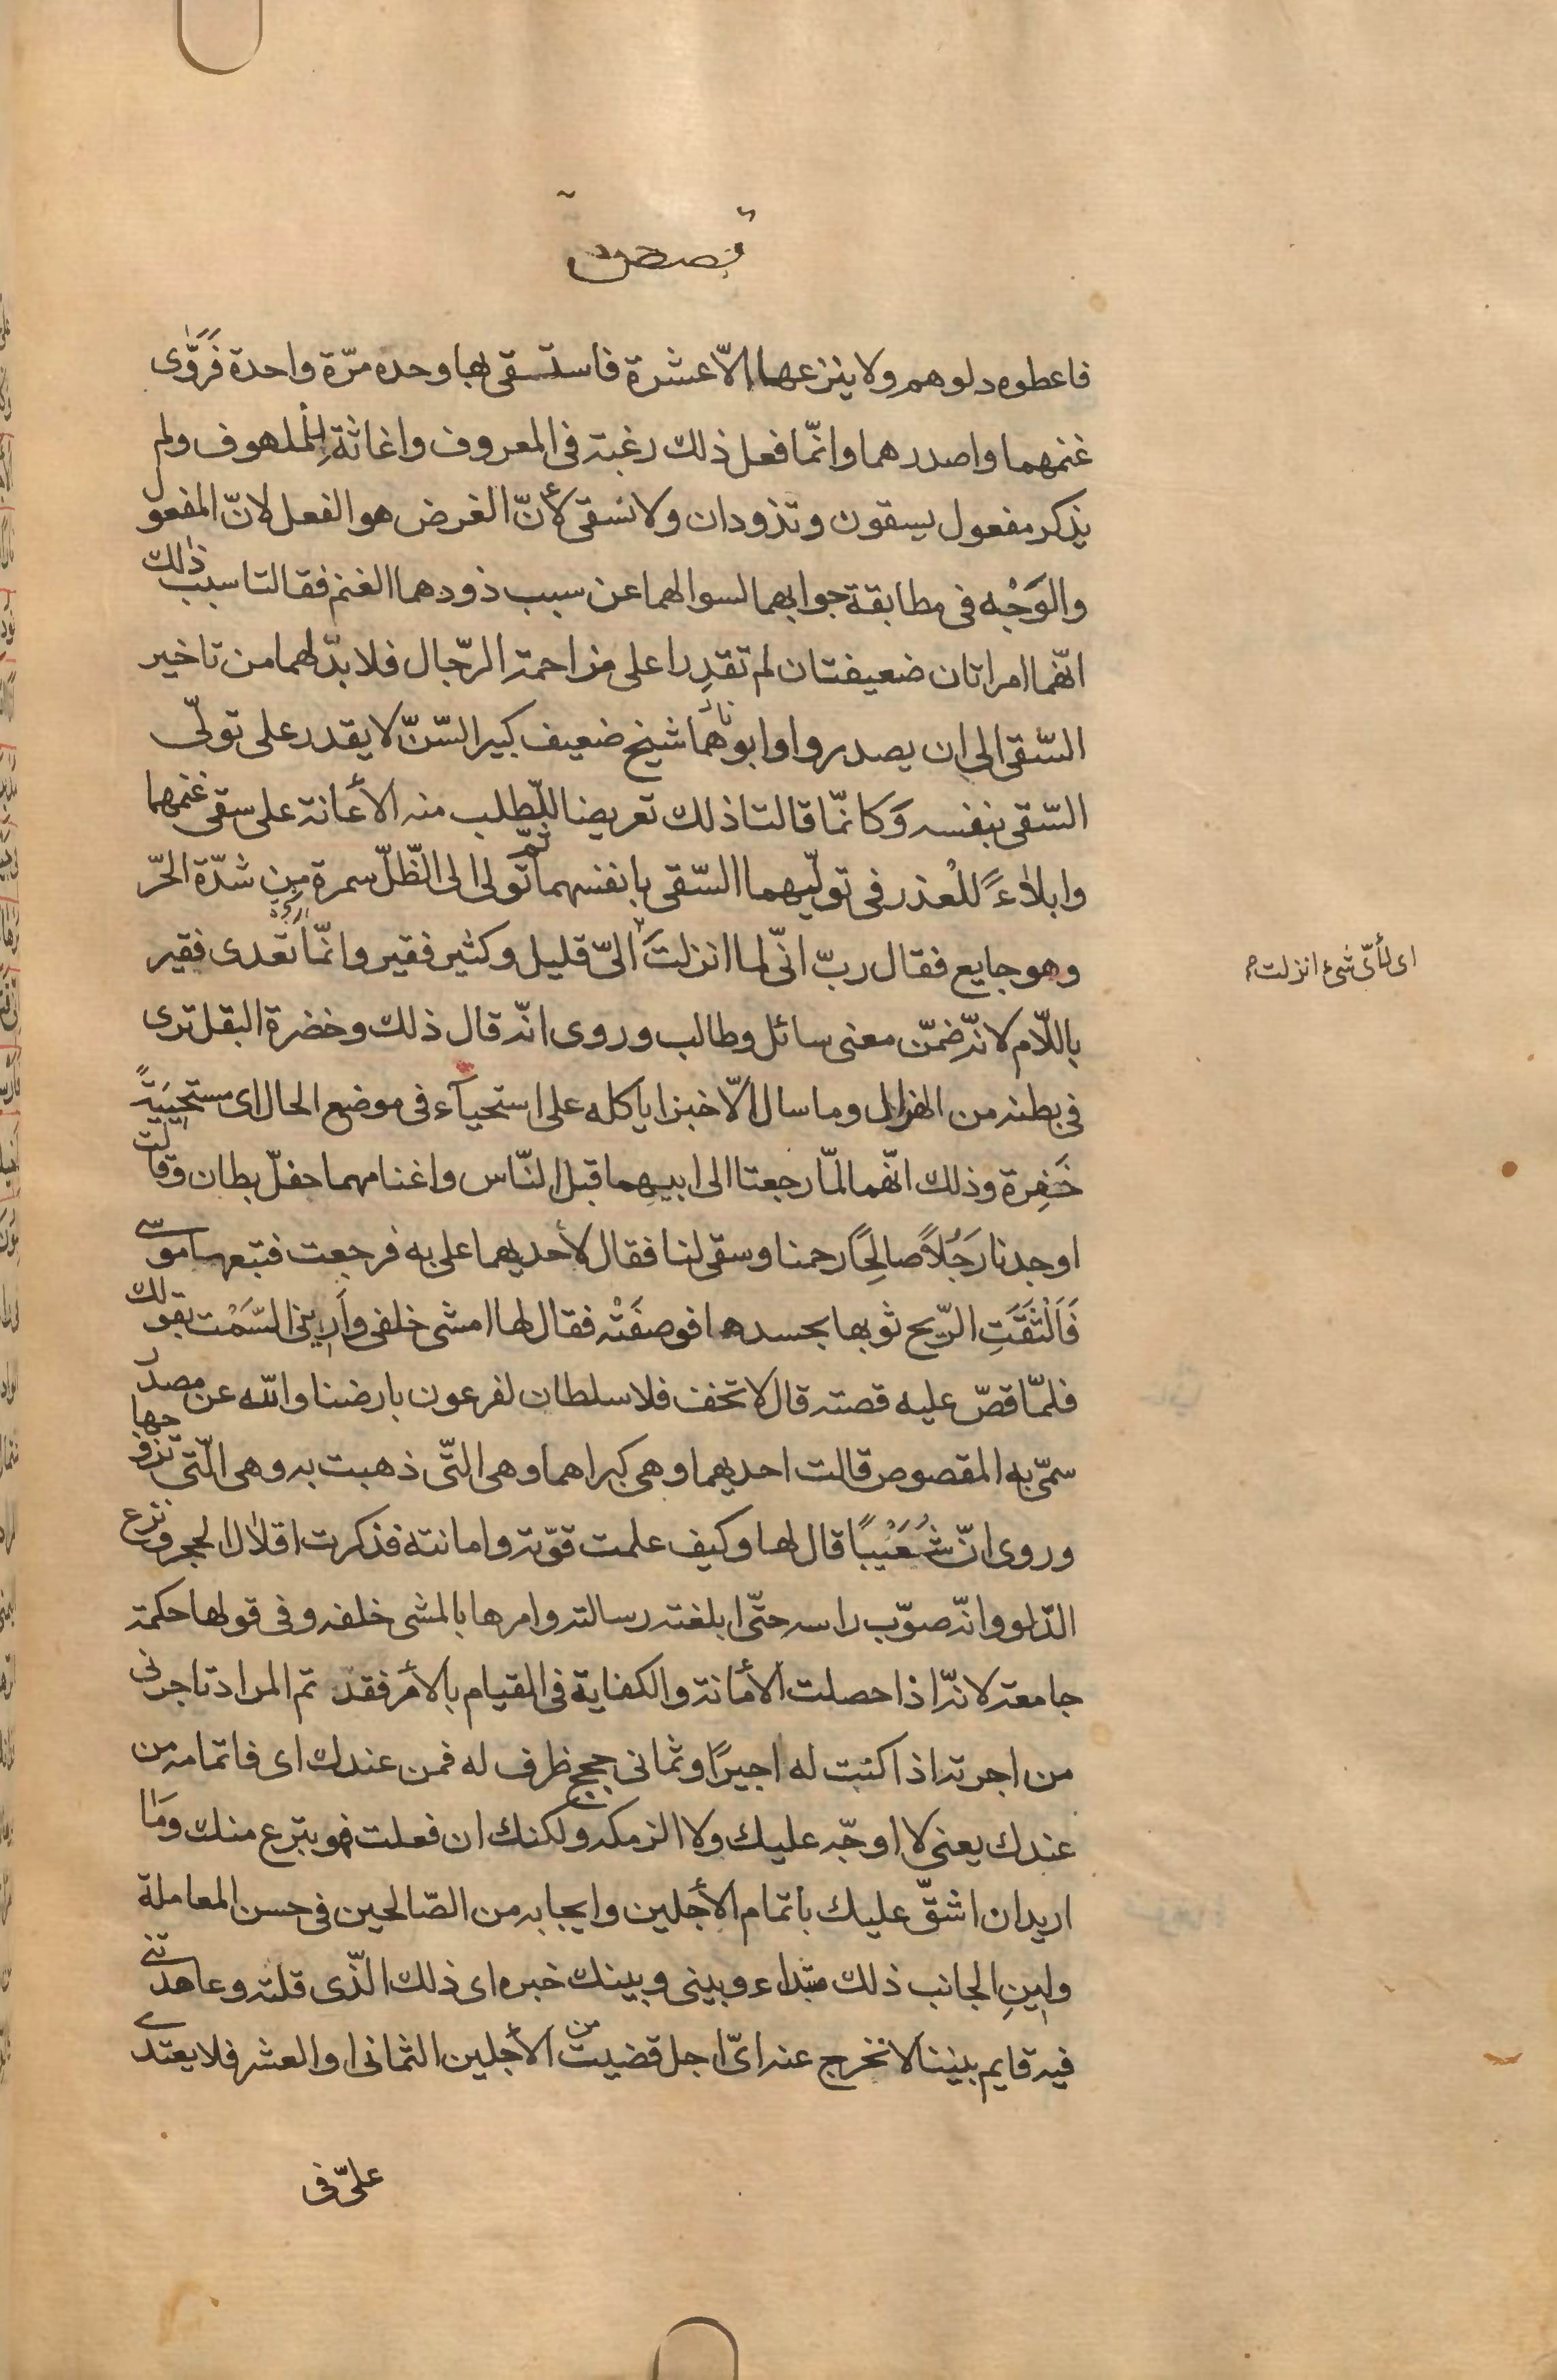 قصص
فاعطوه دلوهم ولا ينزعها الّا عشرة فاستسقى بها وحده مرّة واحدة فَرَوّٰى
غنمهما واصدرهما وانّما فعل ذلك رغبة فى المعروف واغاثةً للملهوف ولم
يذكر مفعول يسقون وتذودان ولا نسقى لأنّ الغرض هو الفعل لانّ المفعول
والوَجْه فى مطابقة جوابهما لسواله‍ما عن سبب ذودهما الغنم فقالتا سبب ذٰلك
انّهما امراتان ضعيفتان لم تقدِرا على مزاحمة الرّجال فلا بدّ لهما من تاخير
السّقى الى ان يصدروا وابوهُما شيخ ضعيف كبير السّنّ لا يقدر على تولّى
السّقى بنفسه وَكانّما قالتا ذلك تعريضا للطلب منه الأعانة على سقى غنمهما
وابلاءً للعُذر فى تولّيهما السّقى بانفسهما ثمّ تولى الى الظّلّ سمرة مِن شدّة الحّر
وهو جايع فقال ربّ انّى لما انزلتَ الىّ قليل وكثير فقير وانّما تعدى فقير
اى لأىّ شىء انزلت
باللّام لانّه ضمّن معنى سائل وطالب وروى انّه قال ذلك وخضرة البقل ترى
فى بطنه من الهزال وما سال الّا خبزا ياكله على استحيآء فى موضع الحال اى مستحييةً
خَفِرة وذلك انّهما لمّا رجعتا الى ابيهِما قبل النّاس واغنامهما حفّل بطان وقالت
اوجدنا رَجُلاً صالِحًا رحمنا وسقى لنا فقال لأحديهما على به فرجعت فتبعها موسى
فَاَلْتَقَتِ الرّيح ثوبها بجسدها فوصفَتْه فقال لها امشى خلفى وأَرِينى السَّمْت بقولك
فلمّا قصّ عليه قصته قال لا تخف فلا سلطان لفرعون بارضنا والله عن مصدر
سمّى به المقصوص قالت احديهما وهى كبراهما وهى التّى ذهبت به وهى الّتى تزوّجها
وروى انّ شُعَيْبًا قال لها وكيف علمت قوّته وامانته فذكرت اقلال الحجر ونزع
الدّلو وانّه صوّب راسه حتّى ابلغته رسالته وامرها بالمشى خلفه وفى قولها حكمة
جامعة لانّه اذا حصلت الأمانة والكفاية فى القيام بالأمر فقد تم المراد تاجرنى
من اجرته اذا كتبت له اجيرًا وثمانى حجج ظرف له فمن عندك اى فاتمامه من
عندك يعنى لا اوجّبه عليك ولا الزمكه ولكنك ان فعلت فهو تبرع منك وَمٰا
اريد ان اشقّ عليك باتمام الأجلين وايجابه من الصّالحين فى حسن المعاملة
ولينِ الجانب ذلك مبتداء وبينى وبينك خبره اى ذلك الّذى قلته وعاهدتنى
فيه قايم بيننا لا نخرج عنه اىّ اجل قضيت من الأجلين الثمانى او العشر فلا يعتدى
علىّ فى